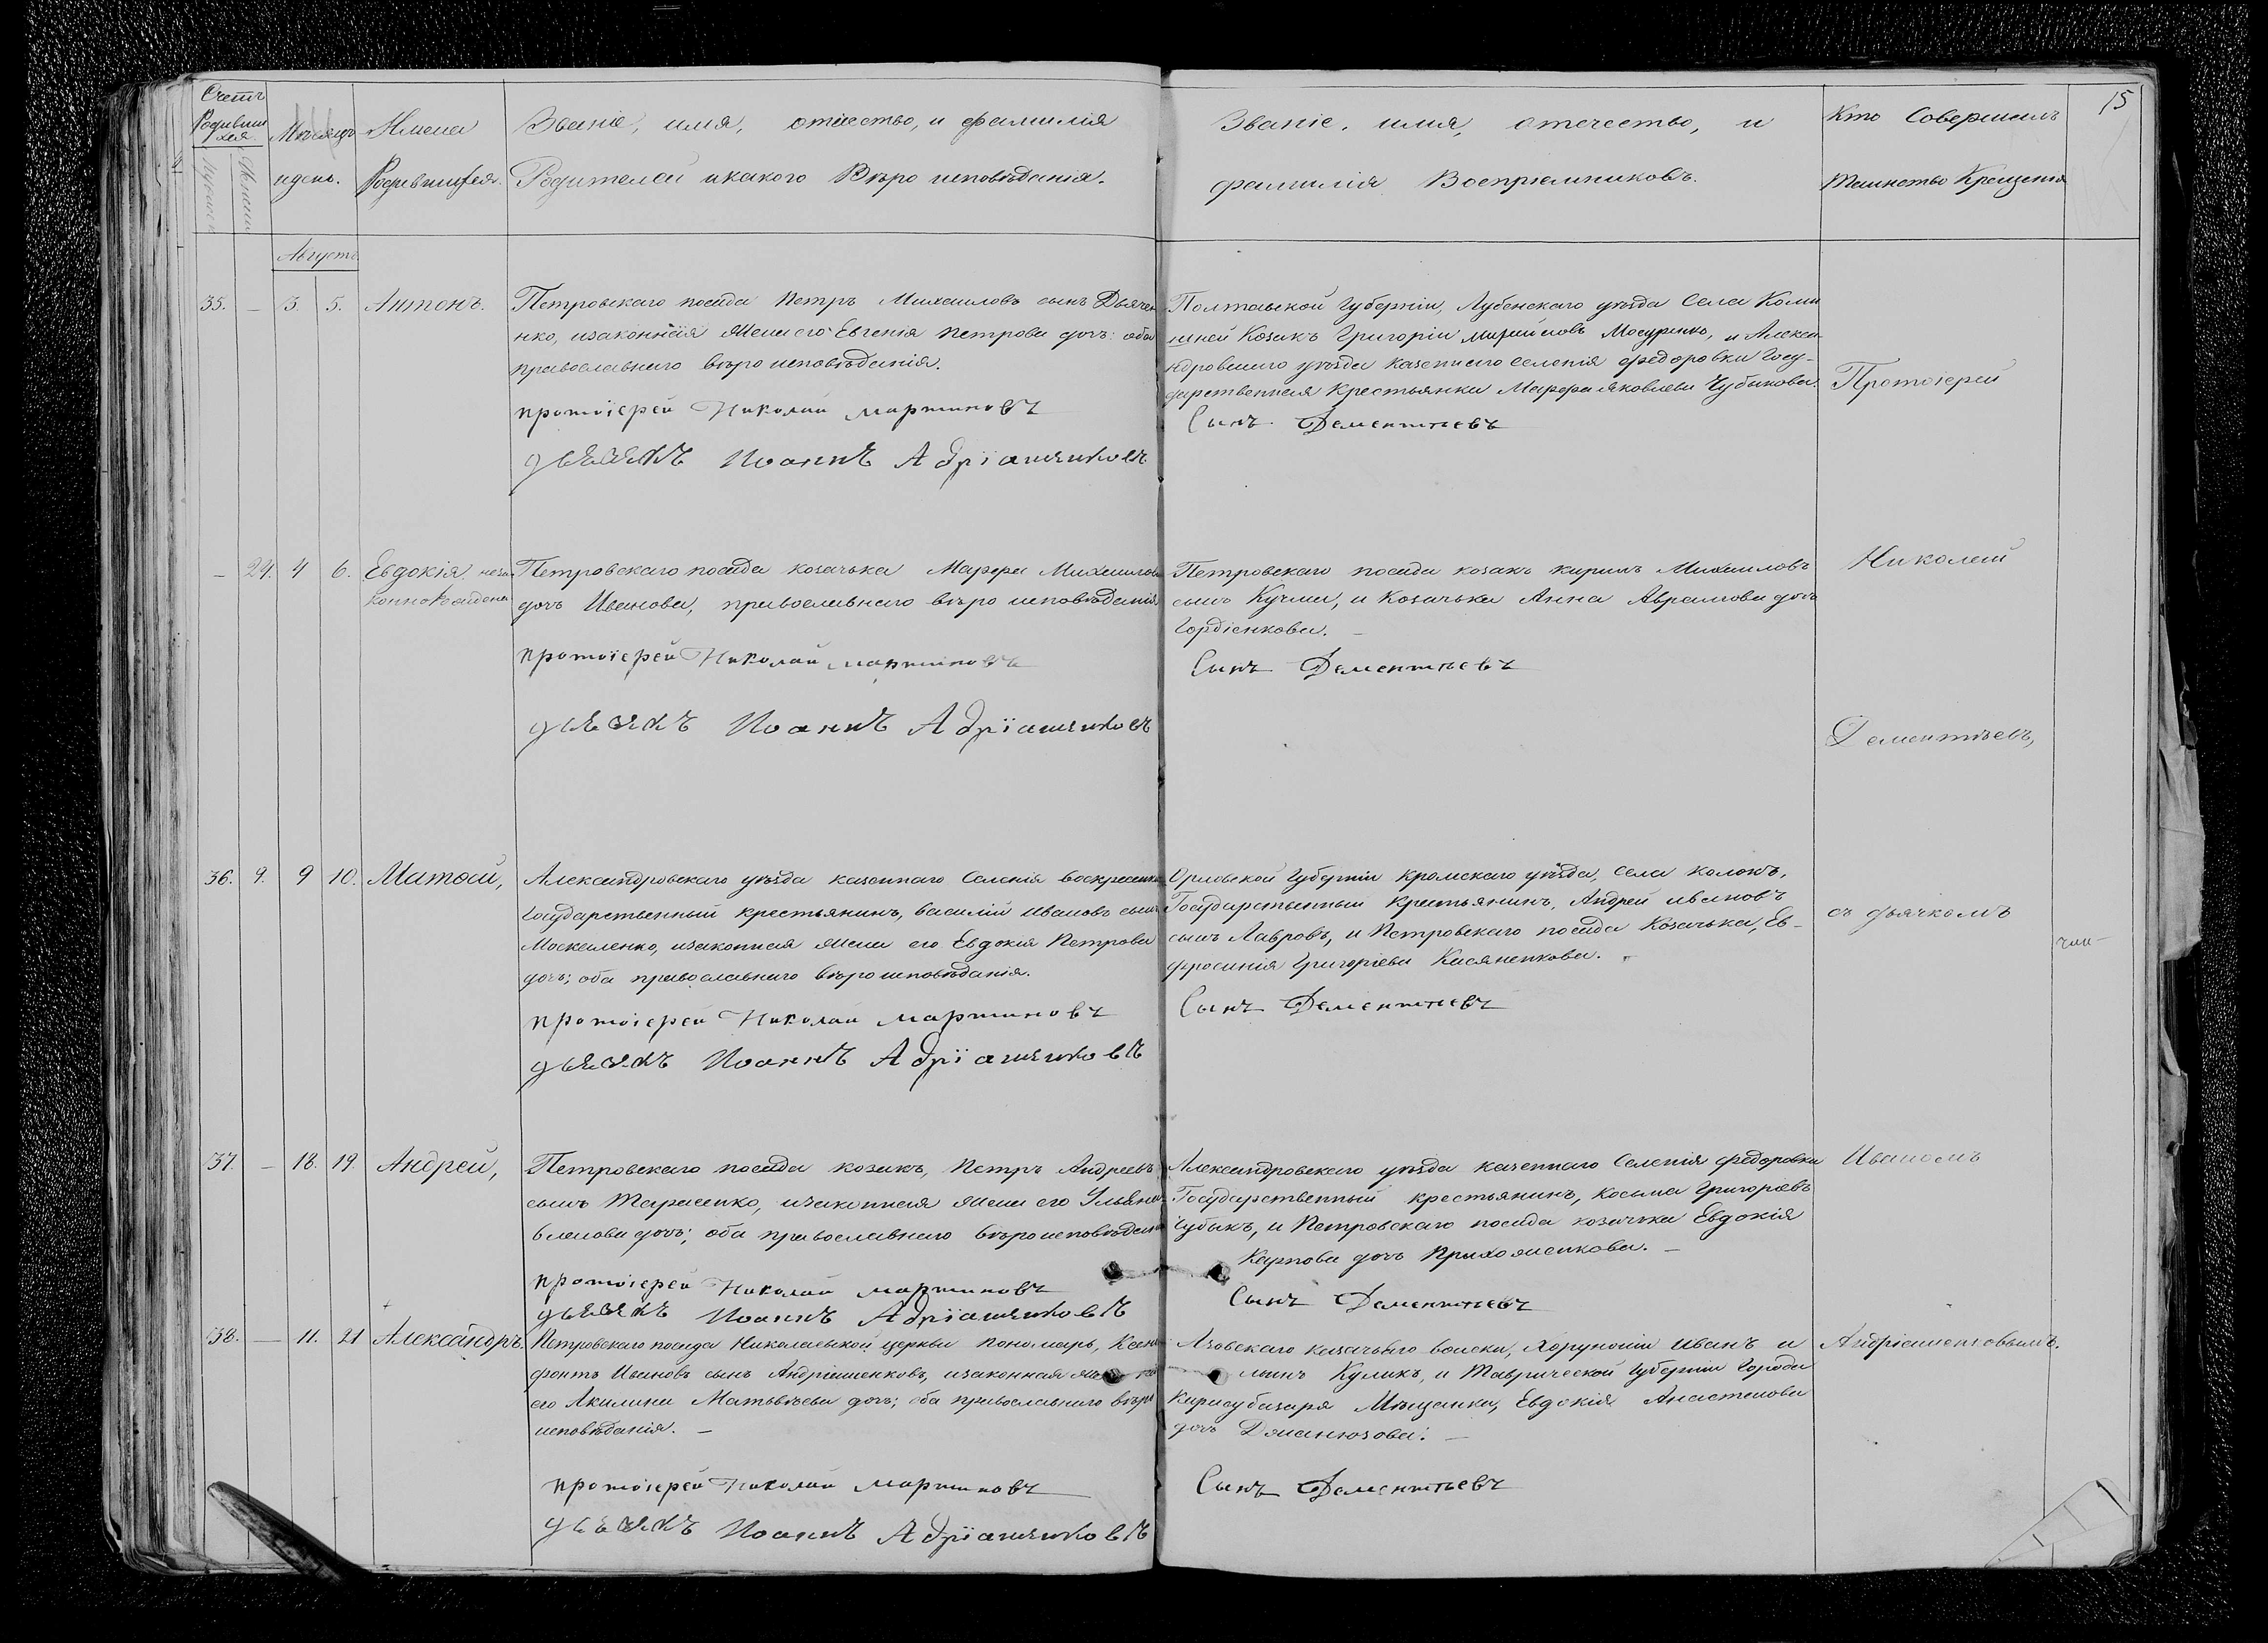 15
Счетъ
Родивши
хся
Мѣсяцъ
и день.
Имена
Родившихся.
Званіе, имя, отчество, и фамилія
Родителей и какого Вѣроисповѣданія.
Званіе, имя, отечество, и
фамилія Воспріемниковъ.
Кто Совершилъ
Таинство Крещенія
Августъ
35. — 3. 5. Антонъ.
Петровскаго посада Петръ Михаиловъ сынъ Дьячен
нко, и законная жена его Евгенія Петрова дочь: оба
православнаго вѣроисповѣданія.
протоіерей Николай
дьячекъ Иоаннъ Адріашенковъ
Полтавской Губерніи, Лубенскаго уѣзда Села
Козакъ Григорій и Алекса
ндровскаго уѣзда казеннаго селенія Федоровки Госу-
дарственная Крестьянка Марфа Яковлева Чубыкова.
Сынъ Дементіевъ
Протоіерей
— 24. 4 6. Евдокія неза
коннорождена
Петровскаго посада козачька Марфа Михаилова
дочь Иванова, православнаго вѣроисповѣданія
протоіерей Николай
дьячекъ Иоаннъ Адріашенковъ
Петровскаго посада козакъ Кирилъ Михаиловъ
сынъ Кучма, и Козачька Анна Аврамова дочь
Гордіенкова. —
Сынъ Дементіевъ
Николай
Дементьевъ,
36. 9. 9 10. Матѳей,
Александровскаго уѣзда казеннаго Селенія Воскресенки
Государственный крестьянинъ, Василій Ивановъ сынъ
Москаленко, и законная жена его Евдокія Петрова
дочь; оба православнаго вѣроисповѣданія.
протоіерей Николай
дьячекъ Иоаннъ Адріашенковъ
Орловской Губерніи Кромскаго уѣзда, Села
Государственный Крестьянинъ, Андрей Ивановъ
сынъ Лавровъ, и Петровскаго посада Козачька, Ев-
фросинія Григоріева Касяненкова.
Сынъ Дементіевъ
съ дьячкомъ
37. — 18. 19. Андрей,
Петровскаго посада козакъ, Петръ Андреевъ
сынъ Тарасенко, и законная жена его Ульяна
дочь; оба православнаго вѣроисповѣдан
протоіерей Николай
дьячекъ Иоаннъ Адріашенковъ
Александровскаго уѣзда казеннаго Селенія Федоровки
Государственный крестьянинъ, Косьма Григорьевъ
Чубыкъ, и Петровскаго посада козачька Евдокія
Карпова дочь Приходженкова. —
Сынъ Дементіевъ
Иваномъ
38. — 11. 21 Александръ.
Петровскаго посада Николаевской церкви Пономарь, Ксено
фонтъ Ивановъ сынъ Андріашенковъ, и законная
его Акилина Матвѣева дочь; оба православнаго вѣро
исповѣданія. —
протоіерей Николай
дьячекъ Иоаннъ Адріашенковъ
Азовскаго казачьяго войска, Хорунжій Иванъ и
Куликъ, и Таврической Губерніи Города
Карасубазаря Мѣщанка, Евдокія
дочь
Сынъ Дементьевъ
Андріашенковымъ.